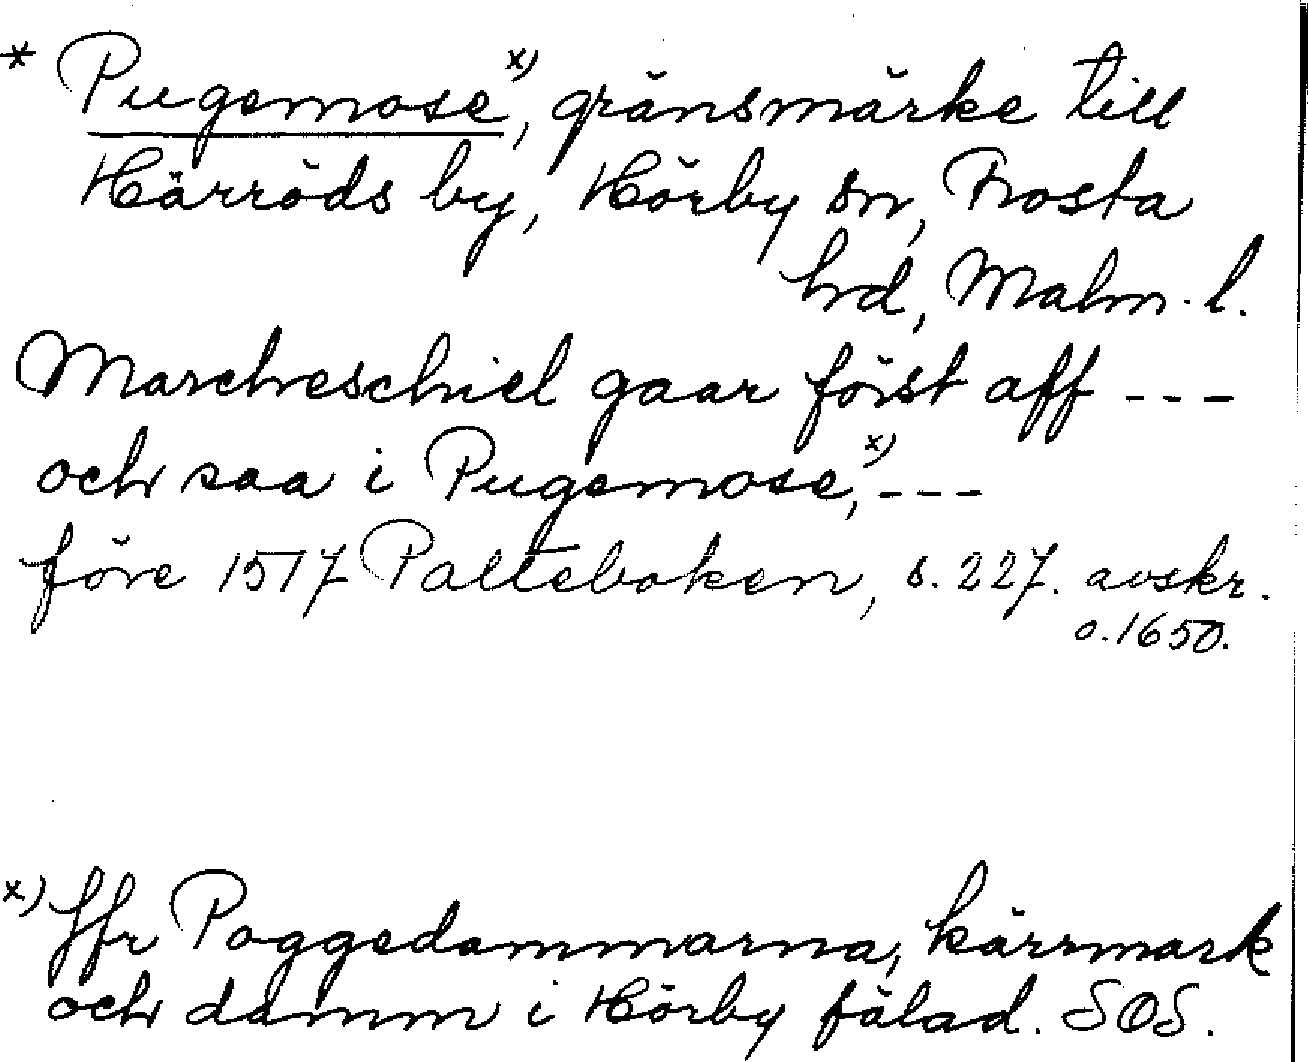 * Pugemose x), gränsmärke till
Härröds by, Hörby sn, Frosta
hd, Malm. l.
Marcheschiel gaar först aff ---
och saa i Pugemose, x) ---
före 1517 Palteboken, s. 227. avskr.
o. 1650.
x) Jfr Poggedammarna, kärrmark
och damm i Hörby fälad. SOS.